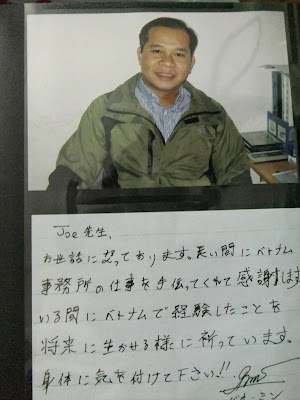 Joe 先生,
お世話に成っております。長い間にベトナム
事務所の仕事を手伝ってくれて感謝します
いる間にベトナムで経験したことを
将来に生かせる様に祈っています。
身体に気を付けて下さい!!